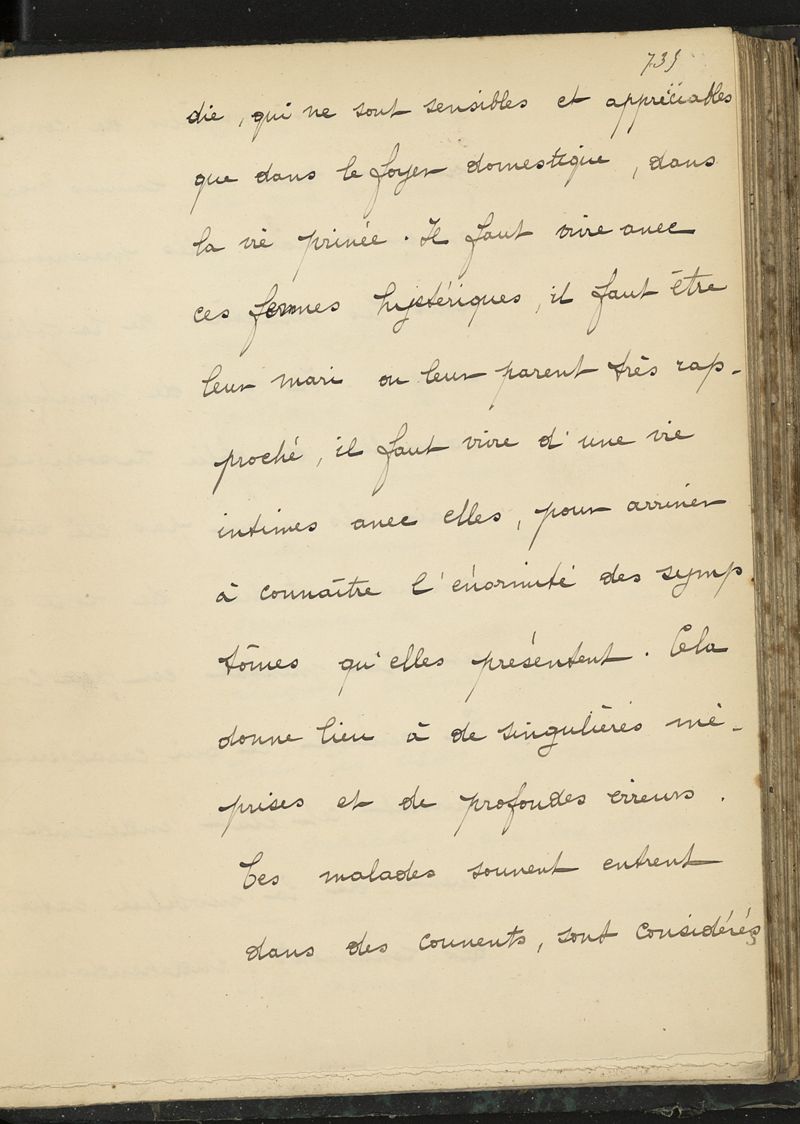 735
die, qui ne sont sensibles et appréciables
que dans le foyer domestique, dans
la vie privée. Il faut vivre avec
ces femmes hystériques, il faut être
leur mari ou leur parent très rap-
proché, il faut vivre d'une vie
intimes avec elles, pour arriver
à connaître l'énormité des symp
tômes qu'elles présentent. Cela
donne lieu à de singulières mé-
prises et de profondes erreurs.
Ces malades souvent entrent
dans des couvents, sont considérés